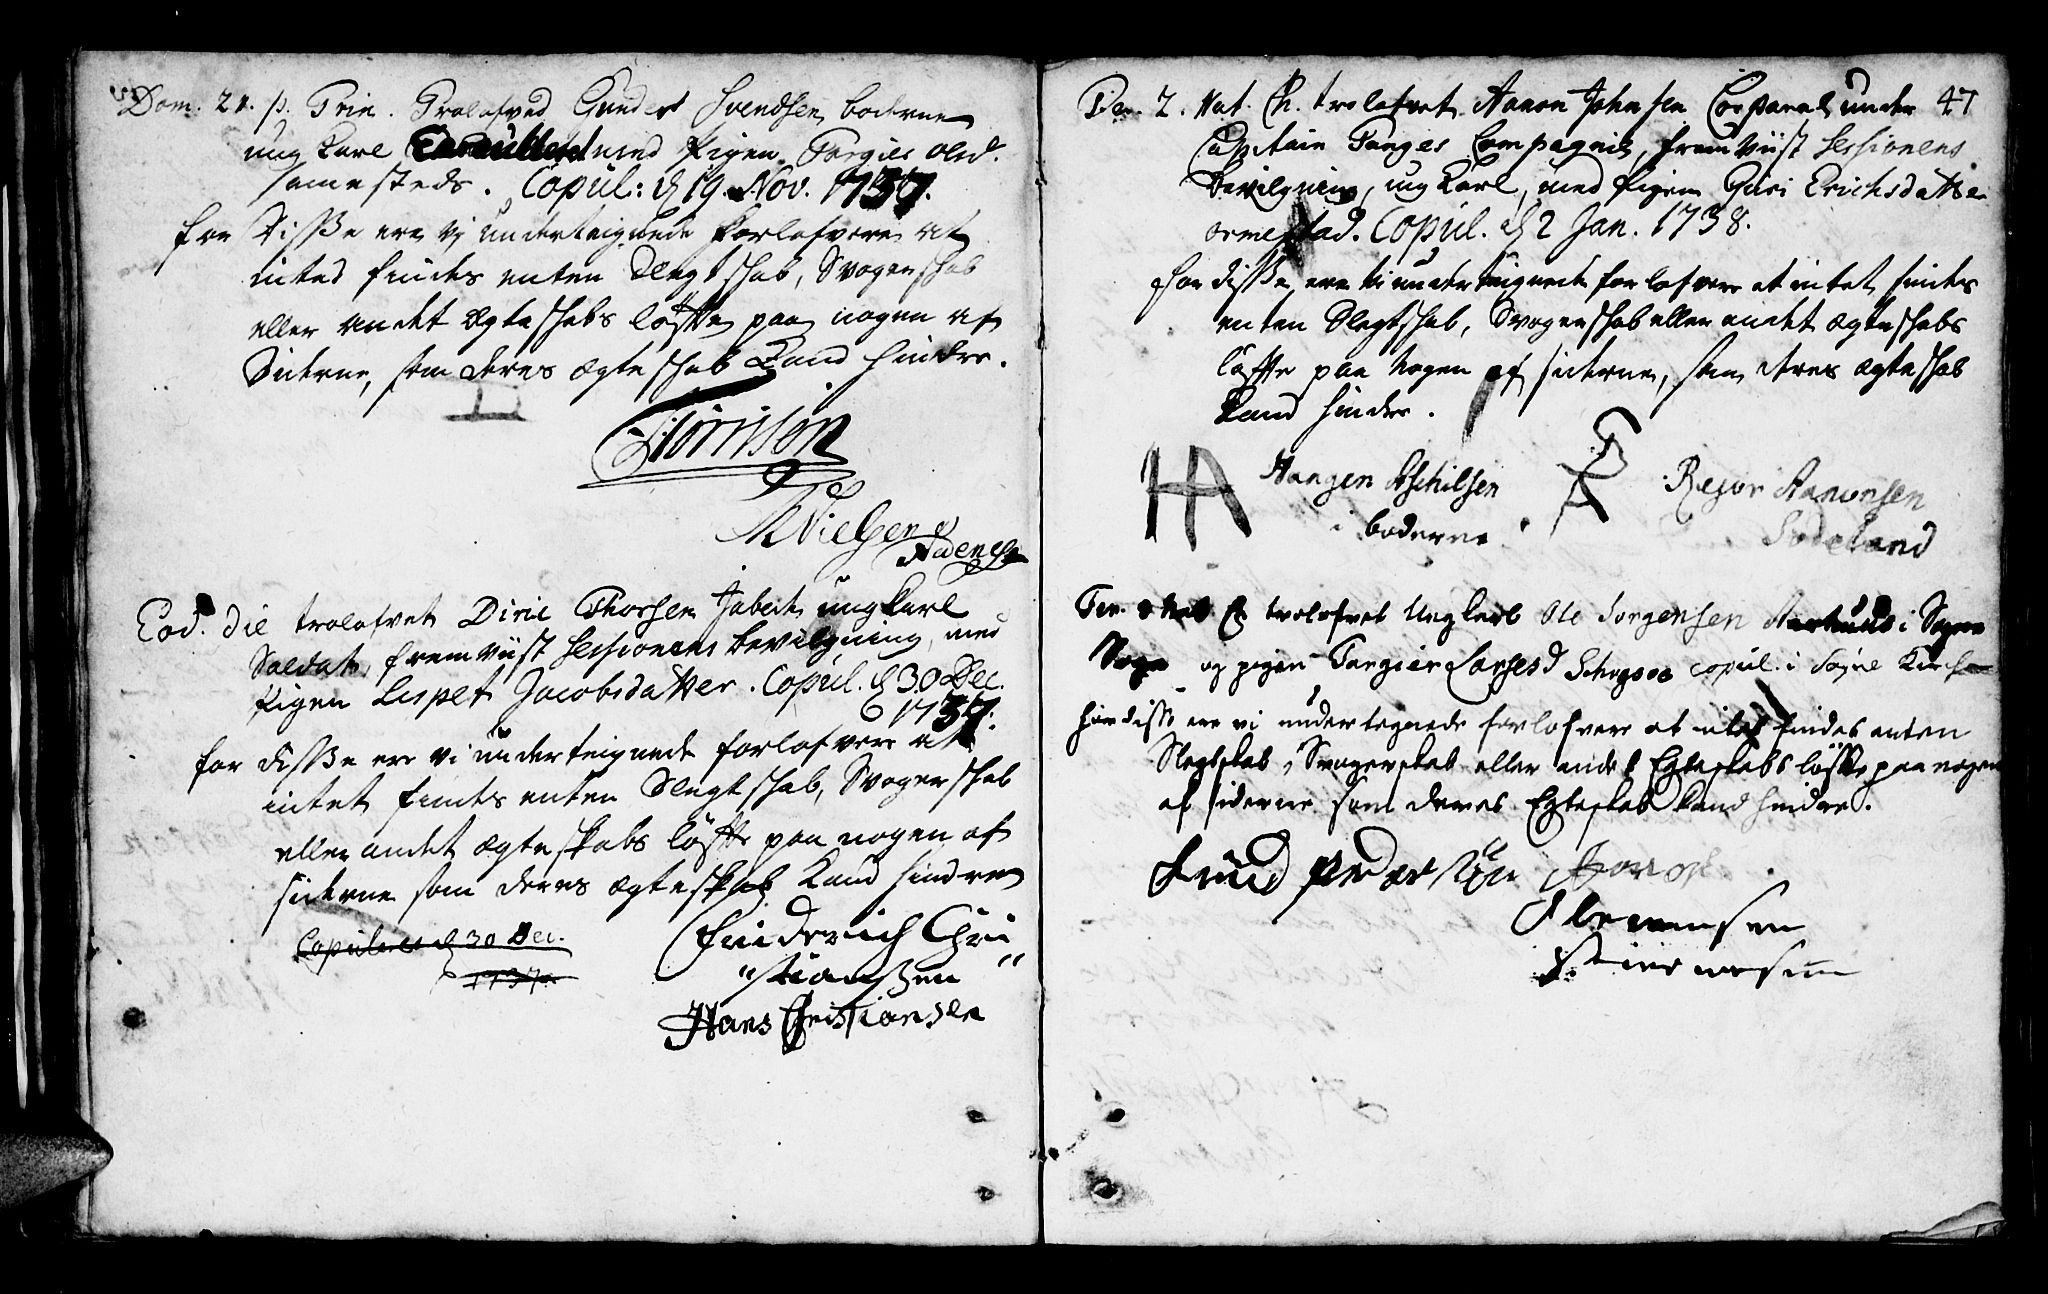 Dom. 21. p. Trin. Trolofved Gunder Svendsen boderne
ung Karl med Pigen Torgier Olsd.
sammesteds. Copul: d 19 Nov. 1737.
for Disse ere vj underteignede forlofvere at
inted findes enten Slegtschab, Svogerschab
eller andet ægteschabs løfte paa nogen af
Siderne, som deres ægteschab Kand hindre.
Nielsen
Eod. die trolofvet Diric Thorsen ungkarl
Soldat, fremviist Sessionens bevilgning, med
Pigen Lispet Jacobsdatter. Copul. d 30 Dec.
1737.
for disse ere vi underteignede forlofvere at
intet findes enten Slegtschab, Svogerschab
eller andet ægteskabs løfte paa nogen af
siderne som deres ægteskab Kand hindre
Copuleret d 30 Dec.
1737.
Friderich Chri
"stianssen"
Hans Christiansen
47
Fer. 2. Nat. Ch. trolofvet Aanon Johnsen Corporal under
Capitain Tanges Compagnie, fremviist Sessionens
bevilgning, ung Karl, med Pigen Guri Erichsdatter
ormestad. Copul. d 2 Jan. 1738.
For disse ere vi underteignede forlofvere at intet findes
enten Slegtschab, Svogerschab eller andet ægteschabs
løfte paa nogen af siderne, som deres ægteschab
kand hindre.
HA Aschilsen
i boderne
Aanonsen
Sodeland
Fer. Nat Ch trolofvet Ungkarl Ole Jorgensen i Sogne
Sogn og pigen Torgier Larsesd copul. i Sogne Kirche
for disse ere vi undertegnede forlofvere at intet findes enten
Slegtskab, Svogerskab eller andet Egteskabs løfte paa nogen
af siderne som deres Egteskab kand hindre.